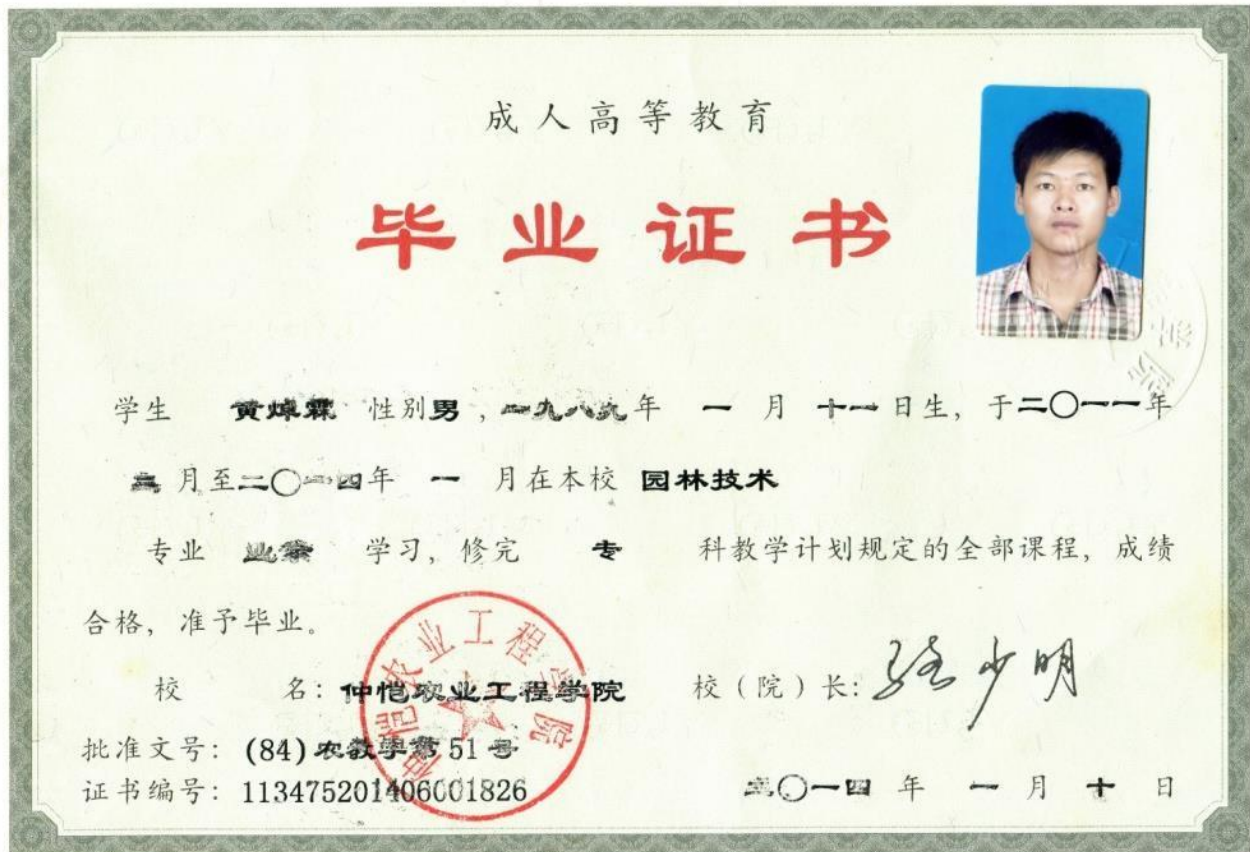 成人高等教育
毕业证书
学生 黄焯霖 性别男，一九八九年 一 月 十一日生，于二〇一一年
三月至二〇一四年 一 月在本校 园林技术
专业 业余 学习，修完 专 科教学计划规定的全部课程，成绩
合格，准予毕业。
校 名：仲恺农业工程学院 校（院）长：骆少明
批准文号：(84)农教学第51号
证书编号：113475201406001826
二〇一四年 一 月 十 日
仲恺农业工程学院